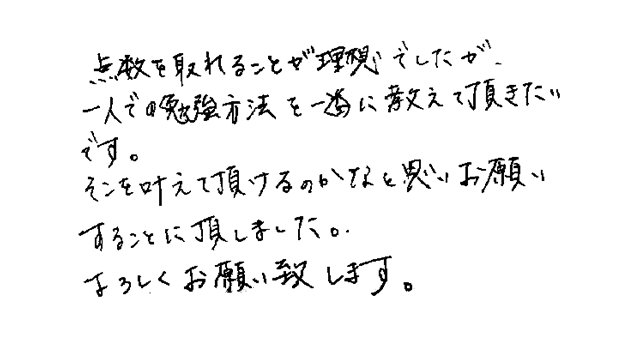 点数を取れることが理想でしたが、
一人での勉強方法を一番に教えて頂きたい
です。
そこを叶えて頂けるのかなと思いお願い
することに頂しました。
よろしくお願い致します。